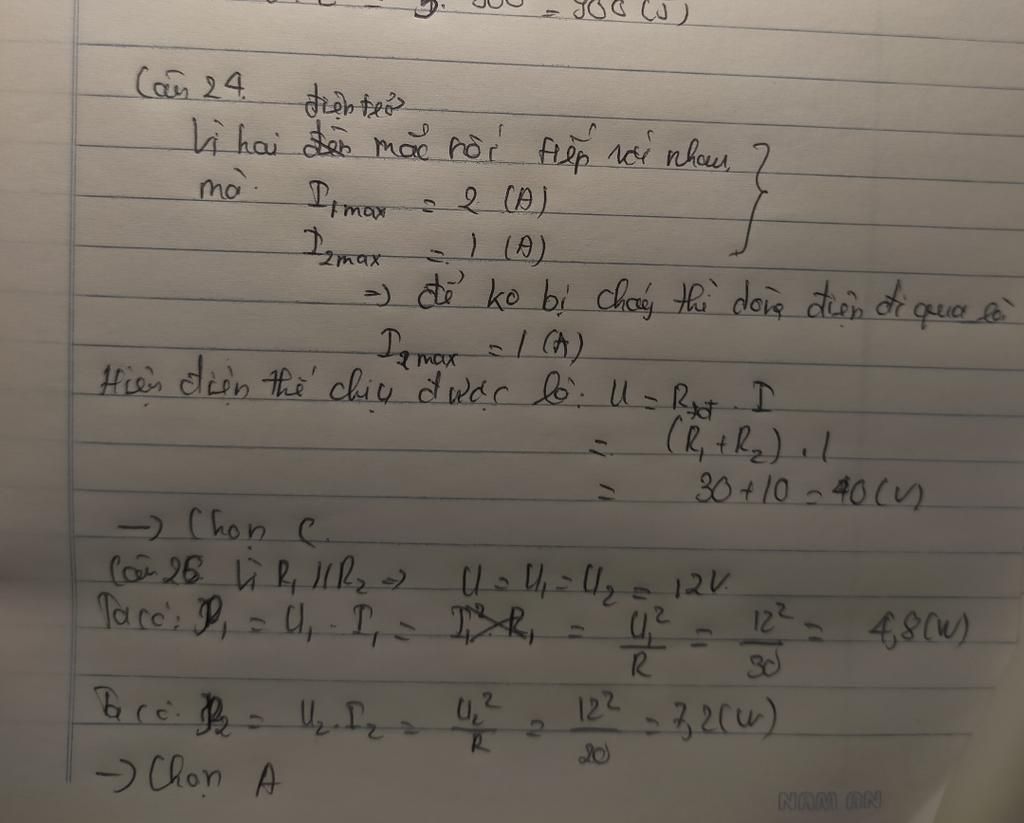 = 900 (J)
Câu 24.
điện trở
Vì hai mắc nối tiếp với nhau,
mà. I1max = 2 (A)
I2max = 1 (A)
=> để ko bị cháy thì dòng điện đi qua là
I2max = 1 (A)
Hiệu điện thế chịu được là: U = Rtđ . I
= (R1 + R2) . 1
= 30 + 10 = 40 (V)
→ Chọn C.
Câu 26. Vì R1 // R2 => U = U1 = U2 = 12V.
Ta có: P1 = U1 . I1 = = U1² / R = 12² / 30 = 4,8 (W)
Ta có: P2 = U2 . I2 = U2² / R = 12² / 20 = 7,2 (W)
→ Chọn A
NAM AN